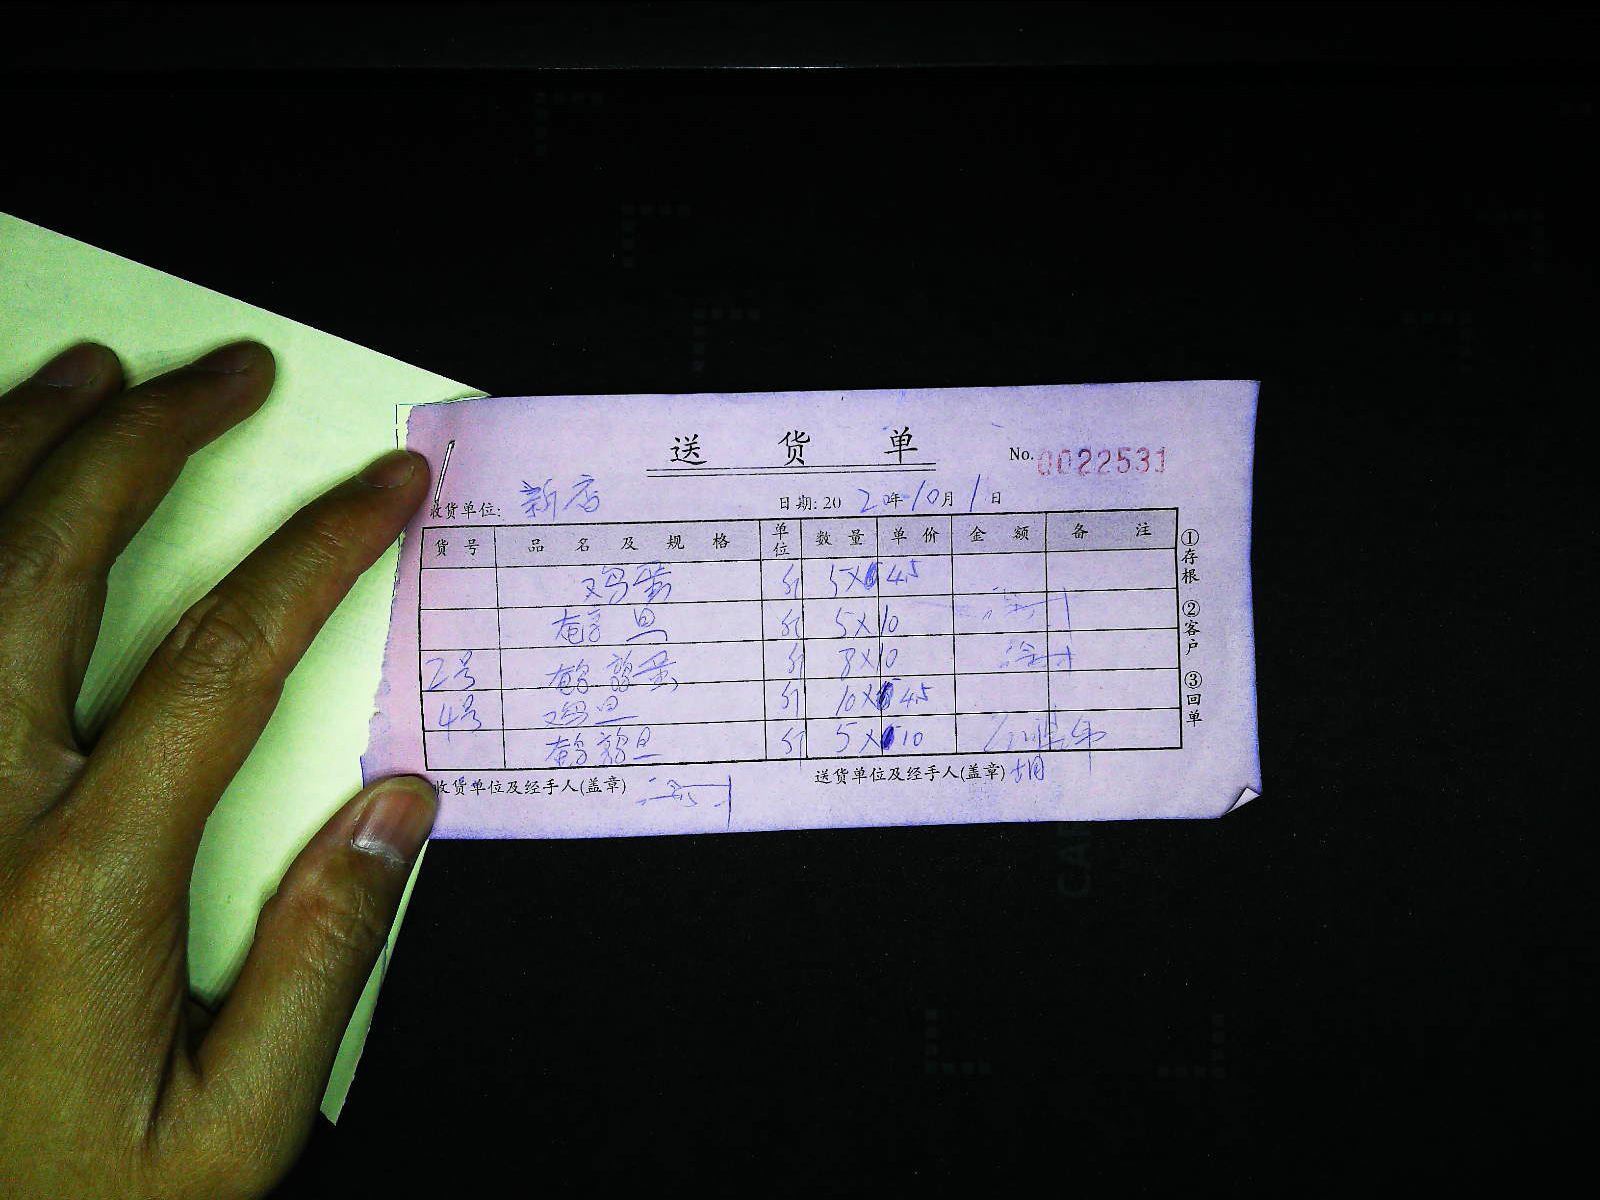 送 货 单
No. 0022531
收货单位: 新店 日期: 20 20年 10月 1日
货号 品名及规格 单位 数量 单价 金额 备注
鸡蛋 斤 5X 4.5
旦 斤 5X10
2号 鹌鹑蛋 斤 8X10
4号 鸡旦 斤 10X 4.5
鹌鹑旦 斤 5X 10
收货单位及经手人(盖章) 送货单位及经手人(盖章) 胡
①存根 ②客户 ③回单